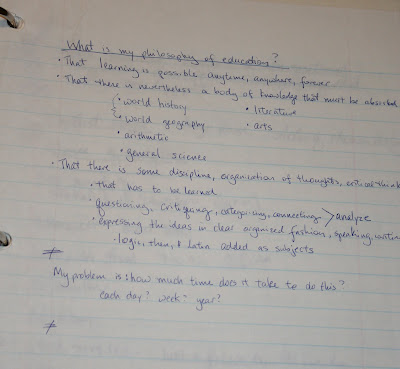 What is my philosophy of education?
• That learning is possible anytime, anywhere, forever
• That there is nevertheless a body of knowledge that must be absorbed
• world history • literature
• world geography • arts
• arithmetic
• general science
• That there is some discipline, organization of thoughts, critical think
• that has to be learned
• questioning, critiquing, categorizing, connecting > analyze
• expressing the ideas in clear organized fashion, speaking, writing
• logic, then, & Latin added as subjects
My problem is: how much time does it take to do this?
each day? week? year?